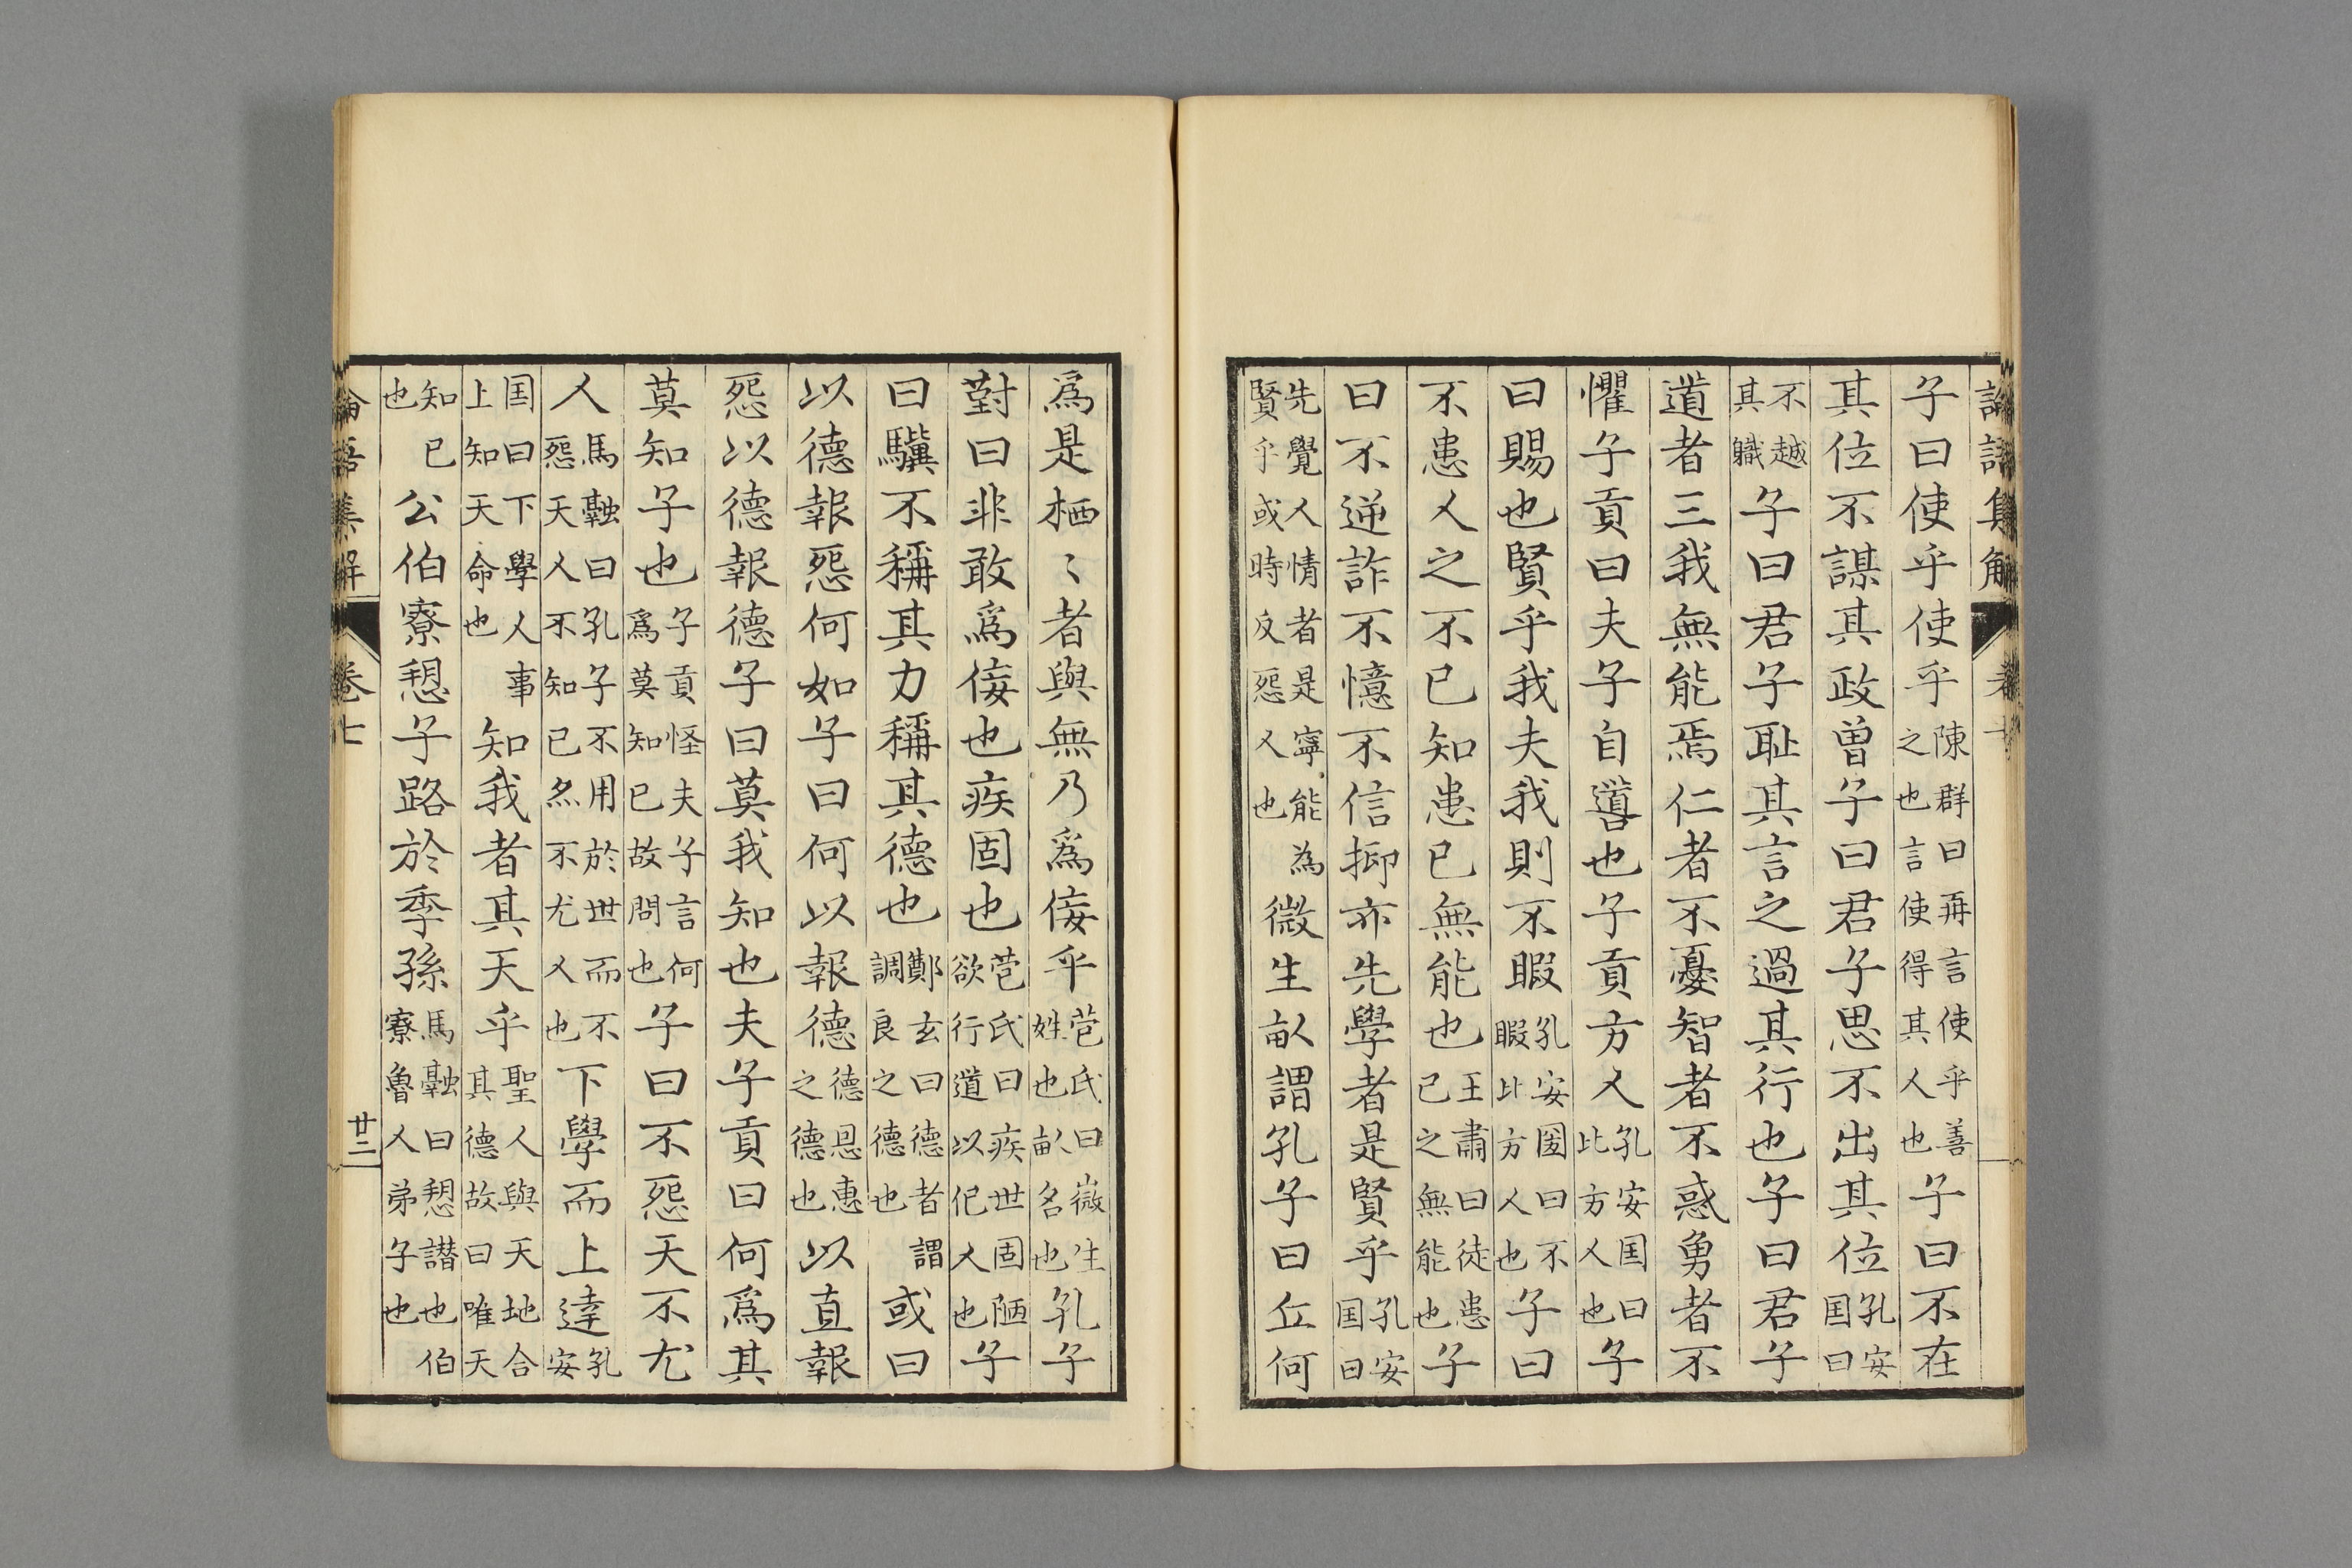 論語集解 卷七
子曰使乎使乎陳群曰再言使乎善之也言使得其人也子曰不在
其位不謀其政曽子曰君子思不出其位孔安国曰
不越其軄子曰君子耻其言之過其行也子曰君子
道者三我無能焉仁者不憂智者不惑勇者不
懼子貢曰夫子自噵也子貢方人孔安国曰比方人也子
曰賜也賢乎我夫我則不暇孔安圀曰不暇比方人也子曰
不患人之不已知患已無能也王肅曰徒患已之無能也子
曰不逆詐不憶不信抑亦先學者是賢乎孔安国曰
先覺人情者是寧能為賢乎或時反怨人也微生畝謂孔子曰丘何
爲是栖〻者與無乃爲侫乎苞氏曰微生姓也畝名也孔子
對曰非敢爲侫也疾固也苞氏曰疾世固陋欲行道以化人也子
曰驥不稱其力稱其德也鄭玄曰德者謂調良之德也或曰
以德報怨何如子曰何以報德德恩惠之德也以直報
怨以德報德子曰莫我知也夫子貢曰何爲其
莫知子也子貢怪夫子言何爲莫知已故問也子曰不怨天不尤
人馬融曰孔子不用於世而不怨天人不知已亦不尤人也下學而上達孔安
国曰下學人事上知天命也知我者其天乎聖人與天地合其德故曰唯天
知已也公伯寮愬子路於季孫馬融曰愬譖也伯寮魯人弟子也
論語集解 卷七 廿二